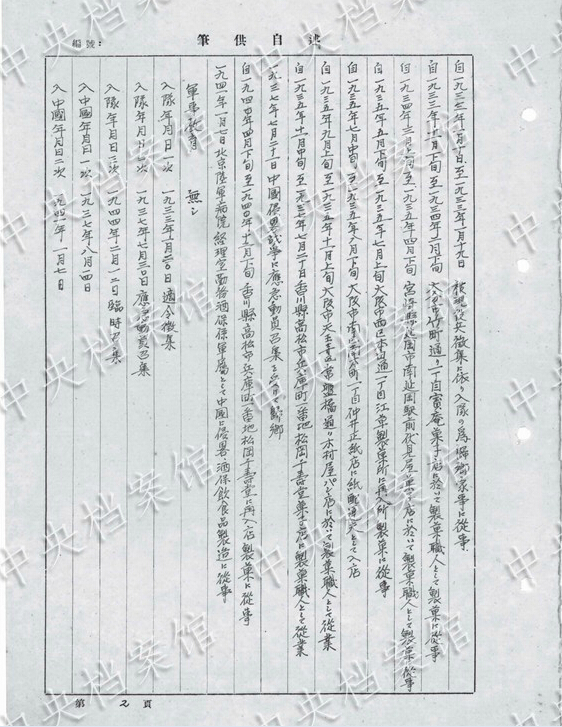 述自供筆
編號:
自一九三三年一月十日至一九三三年一月十九日 現役兵徴集に依り入隊の為帰郷家事に従事
自一九三三年十一月上旬至一九三四年二月下旬 町通り一丁目寳庵菓子店に於いて製菓職人として製菓に従事
自一九三四年三月上旬至一九三五年四月下旬 宮崎縣延岡市南延岡駅前伏見屋菓子店に於いて製菓職人として製菓に従事
自一九三五年五月下旬至一九三五年七月上旬大阪市西区本田通一丁目江草製菓所に再入所製菓に従事
自一九三五年七月中旬至一九三五年八月下旬大阪市南区 町一丁目仲井正紙店に紙職 として入店
自一九三五年九月上旬至一九三五年十一月上旬大阪市天王寺区 橋通り木村屋パン店に於いて製菓職人として従業
自一九三五年十一月中旬至一九三七年七月二十日香川縣高松市兵庫町一番地松岡千壽堂菓子店に製菓職人として従業
一九三七年七月二十一日中國侵畧戦争に應急動員召集を受けて帰郷
自一九四四年四月下旬至一九四四年十一月下旬香川縣高松市兵庫町一番地松岡千壽堂に再入店製菓に従事
一九四一年一月七日北京陸軍病院経理室酒保係軍属として中國に侵畧、酒保飲食品製造に従事
軍事教育 無シ
入隊年月日一次 一九三三年一月二〇日適令徴集
入隊年月日二次 一九三七年七月二〇日應急動員召集
入隊年月日三次 一九四四年二月一二日臨時召集
入中國年月日一次 一九三七年八月四日
入中國年月日二次 一九四一年一月七日
第2頁
中央档案馆